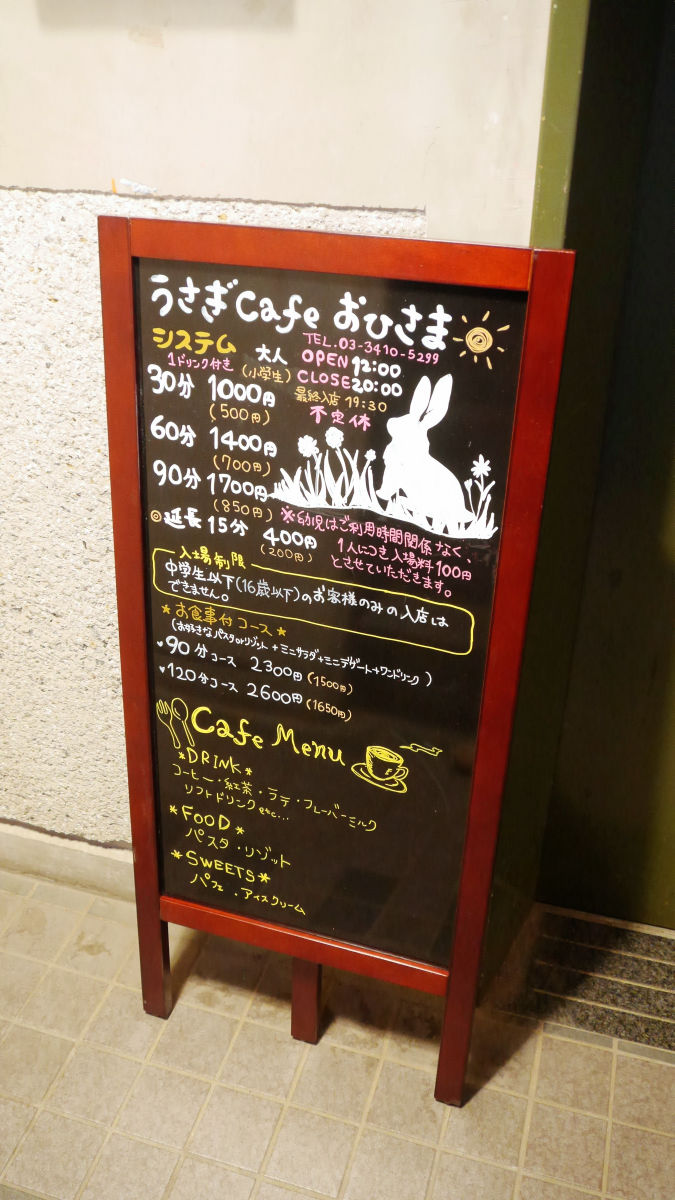 うさぎCafe おひさま
システム
TEL.03-3410-5299
1ドリンク付き 大人 OPEN 12:00
(小学生) CLOSE 20:00
30分 1000円 最終入店 19:30
(500円) 不定休
60分 1400円
(700円)
90分 1700円
(850円)
◎延長15分 400円
(200円)
※幼児はご利用時間関係なく、
1人につき入場料100円
とさせていただきます。
入場制限
中学生以下(16歳以下)のお客様のみの入店は
できません。
★お食事付コース★
(お好きなパスタorリゾット+ミニサラダ+ミニデザート+ワンドリンク)
♥90分コース 2300円(1500円)
♥120分コース 2600円(1650円)
Cafe Menu
*DRINK*
コーヒー・紅茶・ラテ・フレーバーミルク
ソフトドリンクetc...
*FOOD*
パスタ・リゾット
*SWEETS*
パフェ・アイスクリーム